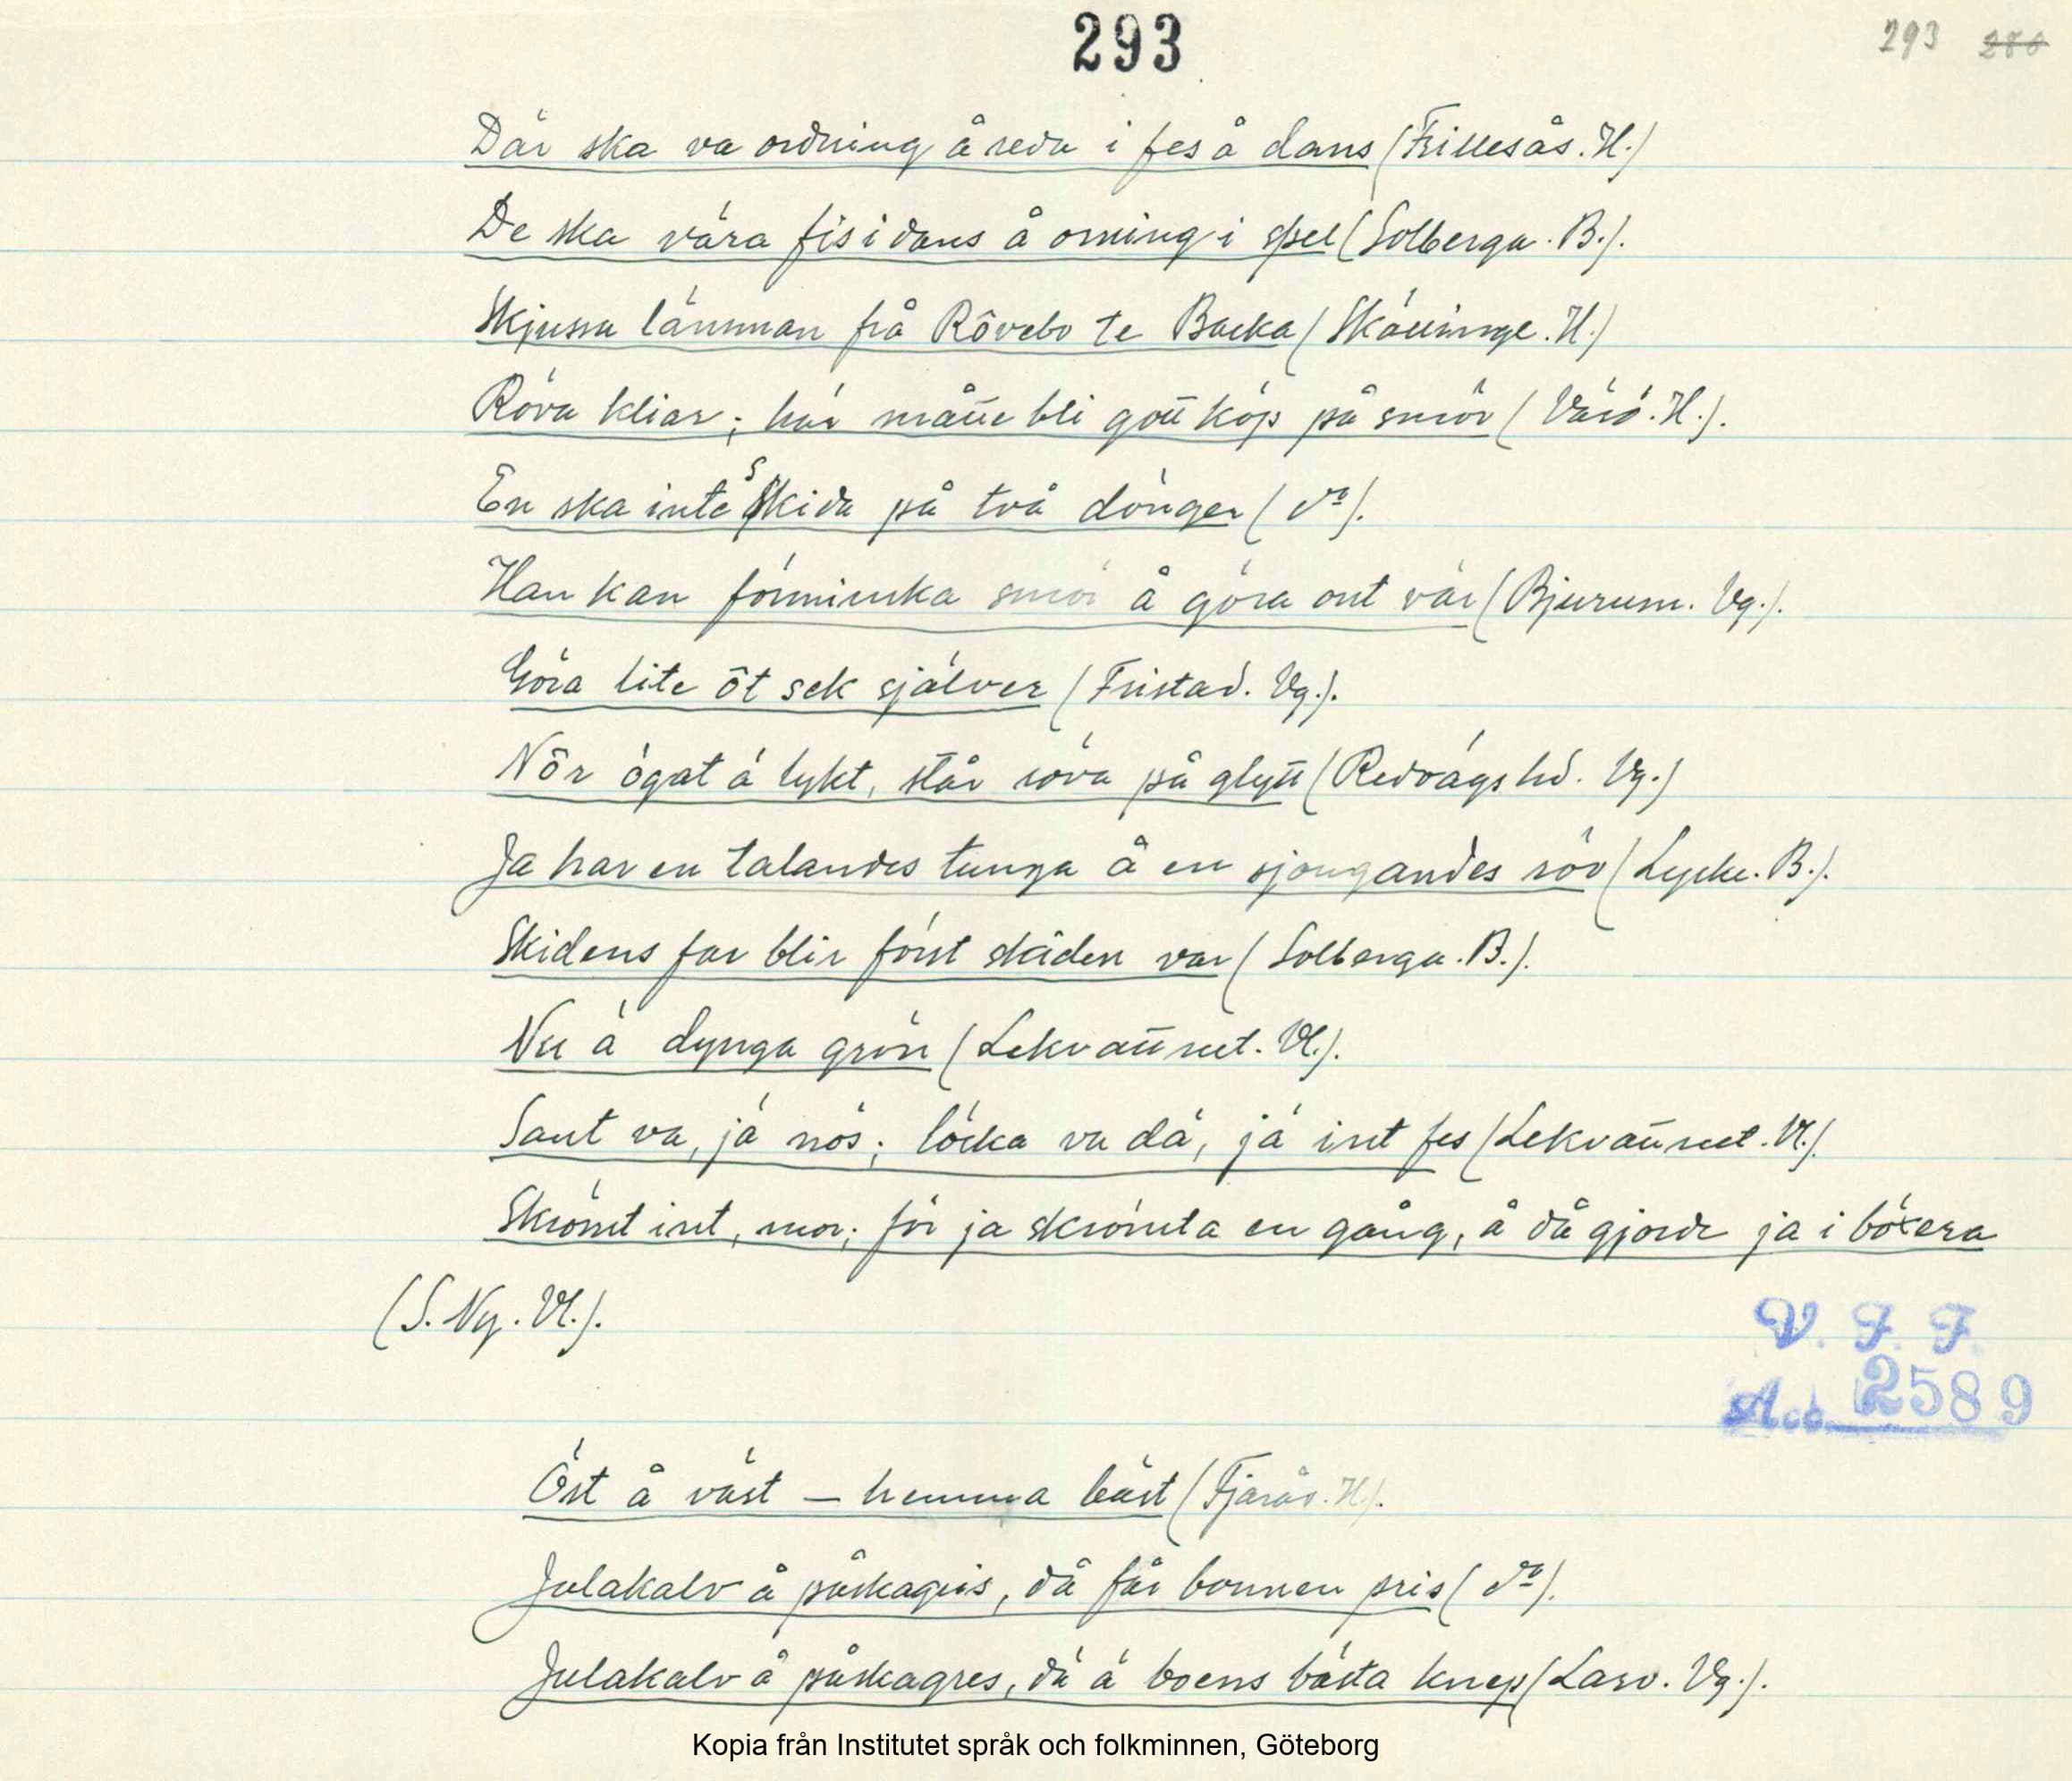 293
293 280
Där ska va ordning å reda i fes å dans (Frillesås. H.)
De ska våra fis i dans å orning i spel (Solberga. B.).
Skjussa länsman frå Rôvebo te Backa (Skällinge. H.)
Röva kliar; här måtte bli gott köp på smör (Värö. H.).
En ska inte skida på två dönger (do).
Han kan förminska smör å göra ont vär (Bjurum. Vg.).
Göra lite ôt sek själver (Fristad. Vg.).
Nôr ögat ä lykt, står röva på glytt (Redvägs hd. Vg.)
Ja har en talandes tunga å en sjongandes röv (Lycke. B.).
Skidens far blir först skiden var (Solberga. B.).
Nu ä dynga grön (Lekvattnet. Vl.).
Sant va, jä nös; löcka va dä, jä int fes (Lekvattnet. Vl.).
Skrömt int, mor; för ja skrömta en gång, å då gjorde ja i böxera
(S. Ny. Vl.).
V. F. F.
Acc. 2589
Öst å väst – hemma bäst (Fjärås. H.).
Julakalv å påskagris, då får bonnen pris (do).
Julakalv å påskagres, dä ä boens bästa knep (Larv. Vg.).
Kopia från Institutet språk och folkminnen, Göteborg